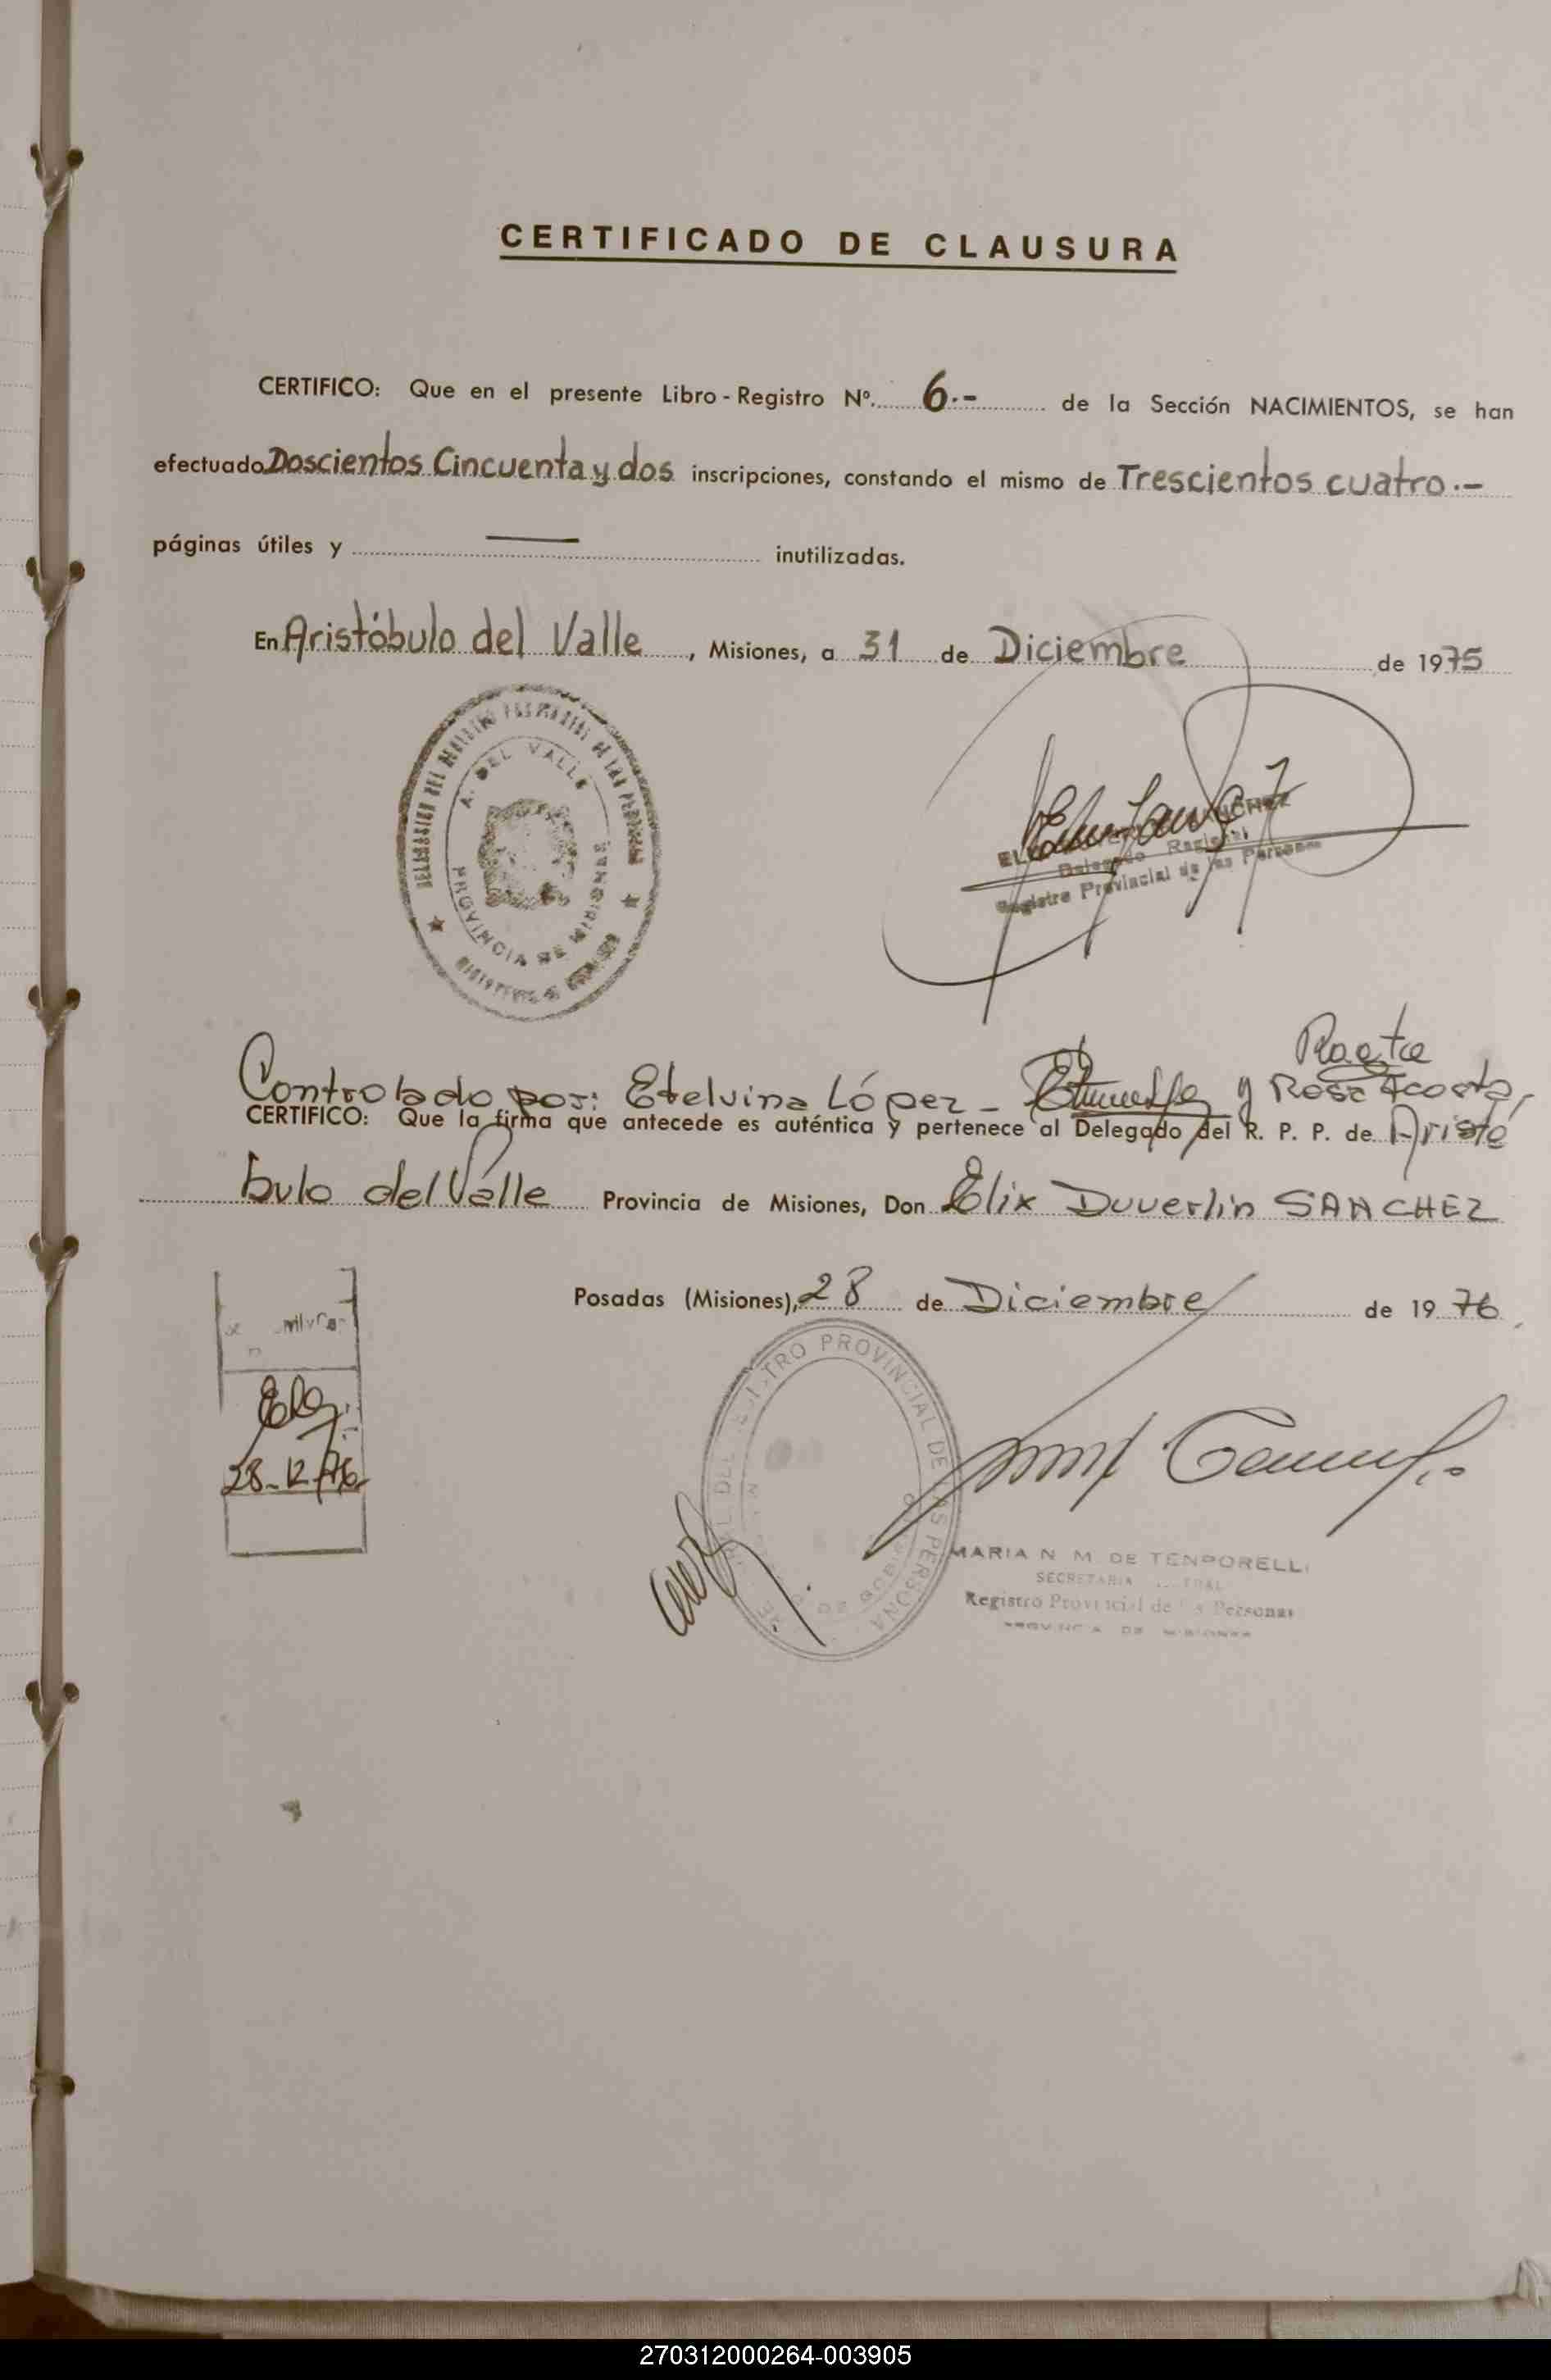 CERTIFICADO DE CLAUSURA
CERTIFICO: Que en el presente Libro - Registro Nº. 6.- de la Sección NACIMIENTOS, se han
efectuado Doscientos Cincuenta y dos inscripciones, constando el mismo de Trescientos cuatro.-
páginas útiles y — inutilizadas.
En Aristóbulo del Valle, Misiones, a 31 de Diciembre de 1975
A. DEL VALLE
PROVINCIA DE MISIONES
Delegado Regional
Registro Provincial de las Personas
Controlado por: Etelvina López - y Rosa Acosta,
CERTIFICO: Que la firma que antecede es auténtica y pertenece al Delegado del R. P. P. de Aristó
bulo del Valle Provincia de Misiones, Don Elix Duverlin SANCHEZ
Posadas (Misiones), 28 de Diciembre de 1976
28-12-76
REGISTRO PROVINCIAL DE LAS PERSONAS
MARIA N. M. DE TENPORELLI
SECRETARIA
Registro Provincial de las Personas
PROVINCIA DE MISIONES
270312000264-003905